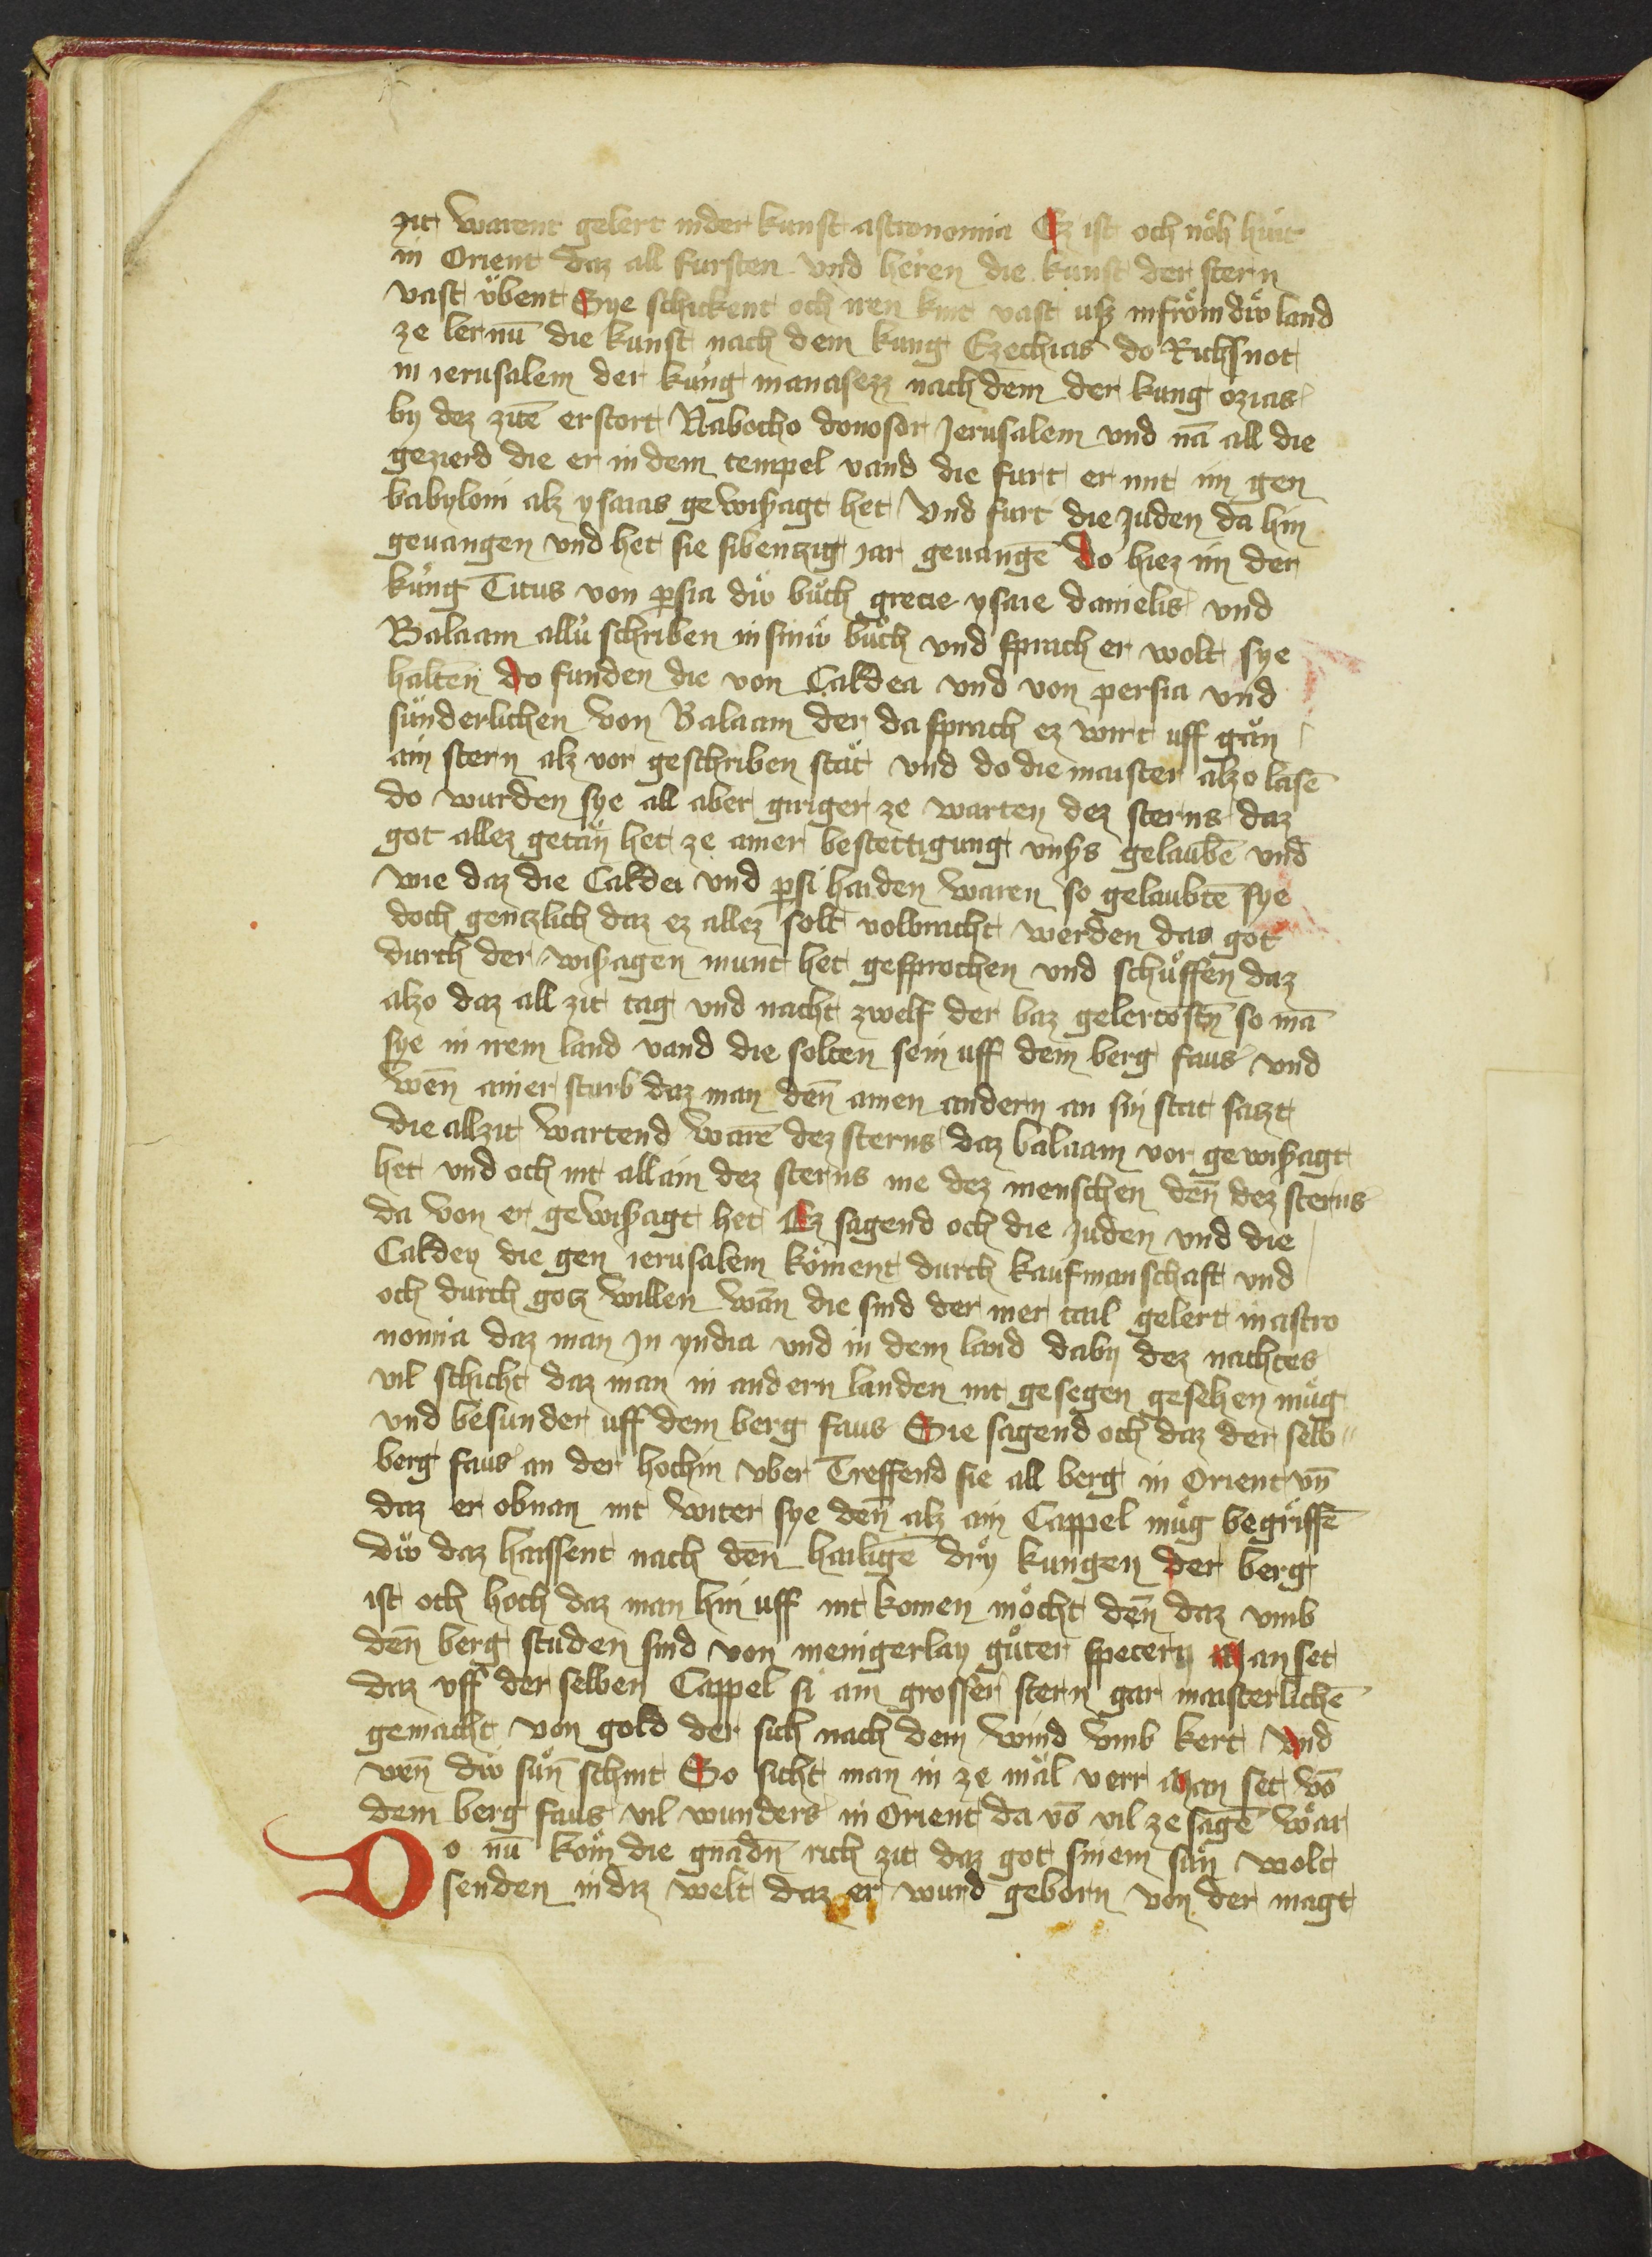 zit warent gelert inder kunst astronomia Ez ist och noͤh huͤt
in Orient daz all fursten vnd heren die kunst der stern
vast uͤbent Sye schickent och iren kint vast uß infroͤmdiw land
ze lernū die kunst nach dem kung Ezechias do Richsnot
in ierusalem der kung manasezz nach dem der kung ozias
by dez zitē erstort Nabocho donosor Jerusalem vnd nā all die
gezierd die er in dem tempel vand die furt er mit im gen
babyloni alz ysaias gewißagt het Vnd furt die juden da hin
geuangen vnd het sie sibentzig jar geuangē do hiez im der
kung Titus von ꝑsia diw buͤch grecie ysaie danielis vnd
Balaam alluͤ schriben in siniw buͤch vnd sprach er wolt sye
halten do funden die von Caldea vnd von persia vnd
sunderlichen von Balaam der da sprach ez wirt uff gaͤn
ain stern alz vor geschriben staͤt vnd do die maister alzo lasē
do wurden sye all aber giriger ze warten dez sterns daz
got allez getaͤn het ze ainer bestettigung vnsßs gelaubē vnd
wie daz die Caldei vnd ꝑsi haiden waren so gelaubtē sye
doch gentzlich daz ez allez solt volbracht werden das got
durch der wißagen munt het gesprochen vnd schuͤffen daz
alzo daz all zit tag vnd nacht zwelf der baz gelertostn̄ so mā
sye in irem land vand die solten sein uff dem berg faus vnd
wen̄ ainer sturb daz man den̄ ainen andern an sin stat satzt
die allzit wartend warē dez sterns daz balaam vor gewißagt
het vnd och nit allain dez sterns me dez menschen den̄ dez sterns
da von er gewißagt het Ez sagend och die juden vnd die
Caldey die gen ierusalem koment durch kaufmanschaft vnd
och durch gotz willen wan̄ die sind der mer tail gelert inastro
nomia daz man Jn yndia vnd in dem land daby dez nachtes
vil schicht daz man in andern landen nit gesegen gesehen muͤg
vnd besunder uff dem berg faus Sie sagend och daz der selb
berg faus an der hochin vber Treffend sie all berg in Orient vn̄
daz er obnan nit witer sye den̄ alz ain Cappel muͤg begriffē
diw daz haissent nach den̄ hailigē dry kungen der berg
ist och hoch daz man hin uff nit komen moͤcht den̄ daz vmb
den̄ berg studen sind von menigerlay guͤter specery Man set
daz vff der selben Cappel si ain grosser stern gar maisterlichē
gemacht von gold der sich nach dem wind vmb kert Vnd
wen̄ diw sun̄ schint So sicht man in ze maͤl verr Man set vō
dem berg faus vil wunders in Orient da vō vil ze sagē waͤr
Do nū kom die gnadn̄ rich zit daz got sinem sun wolt
senden indiz welt daz er wurd geborn von der magt